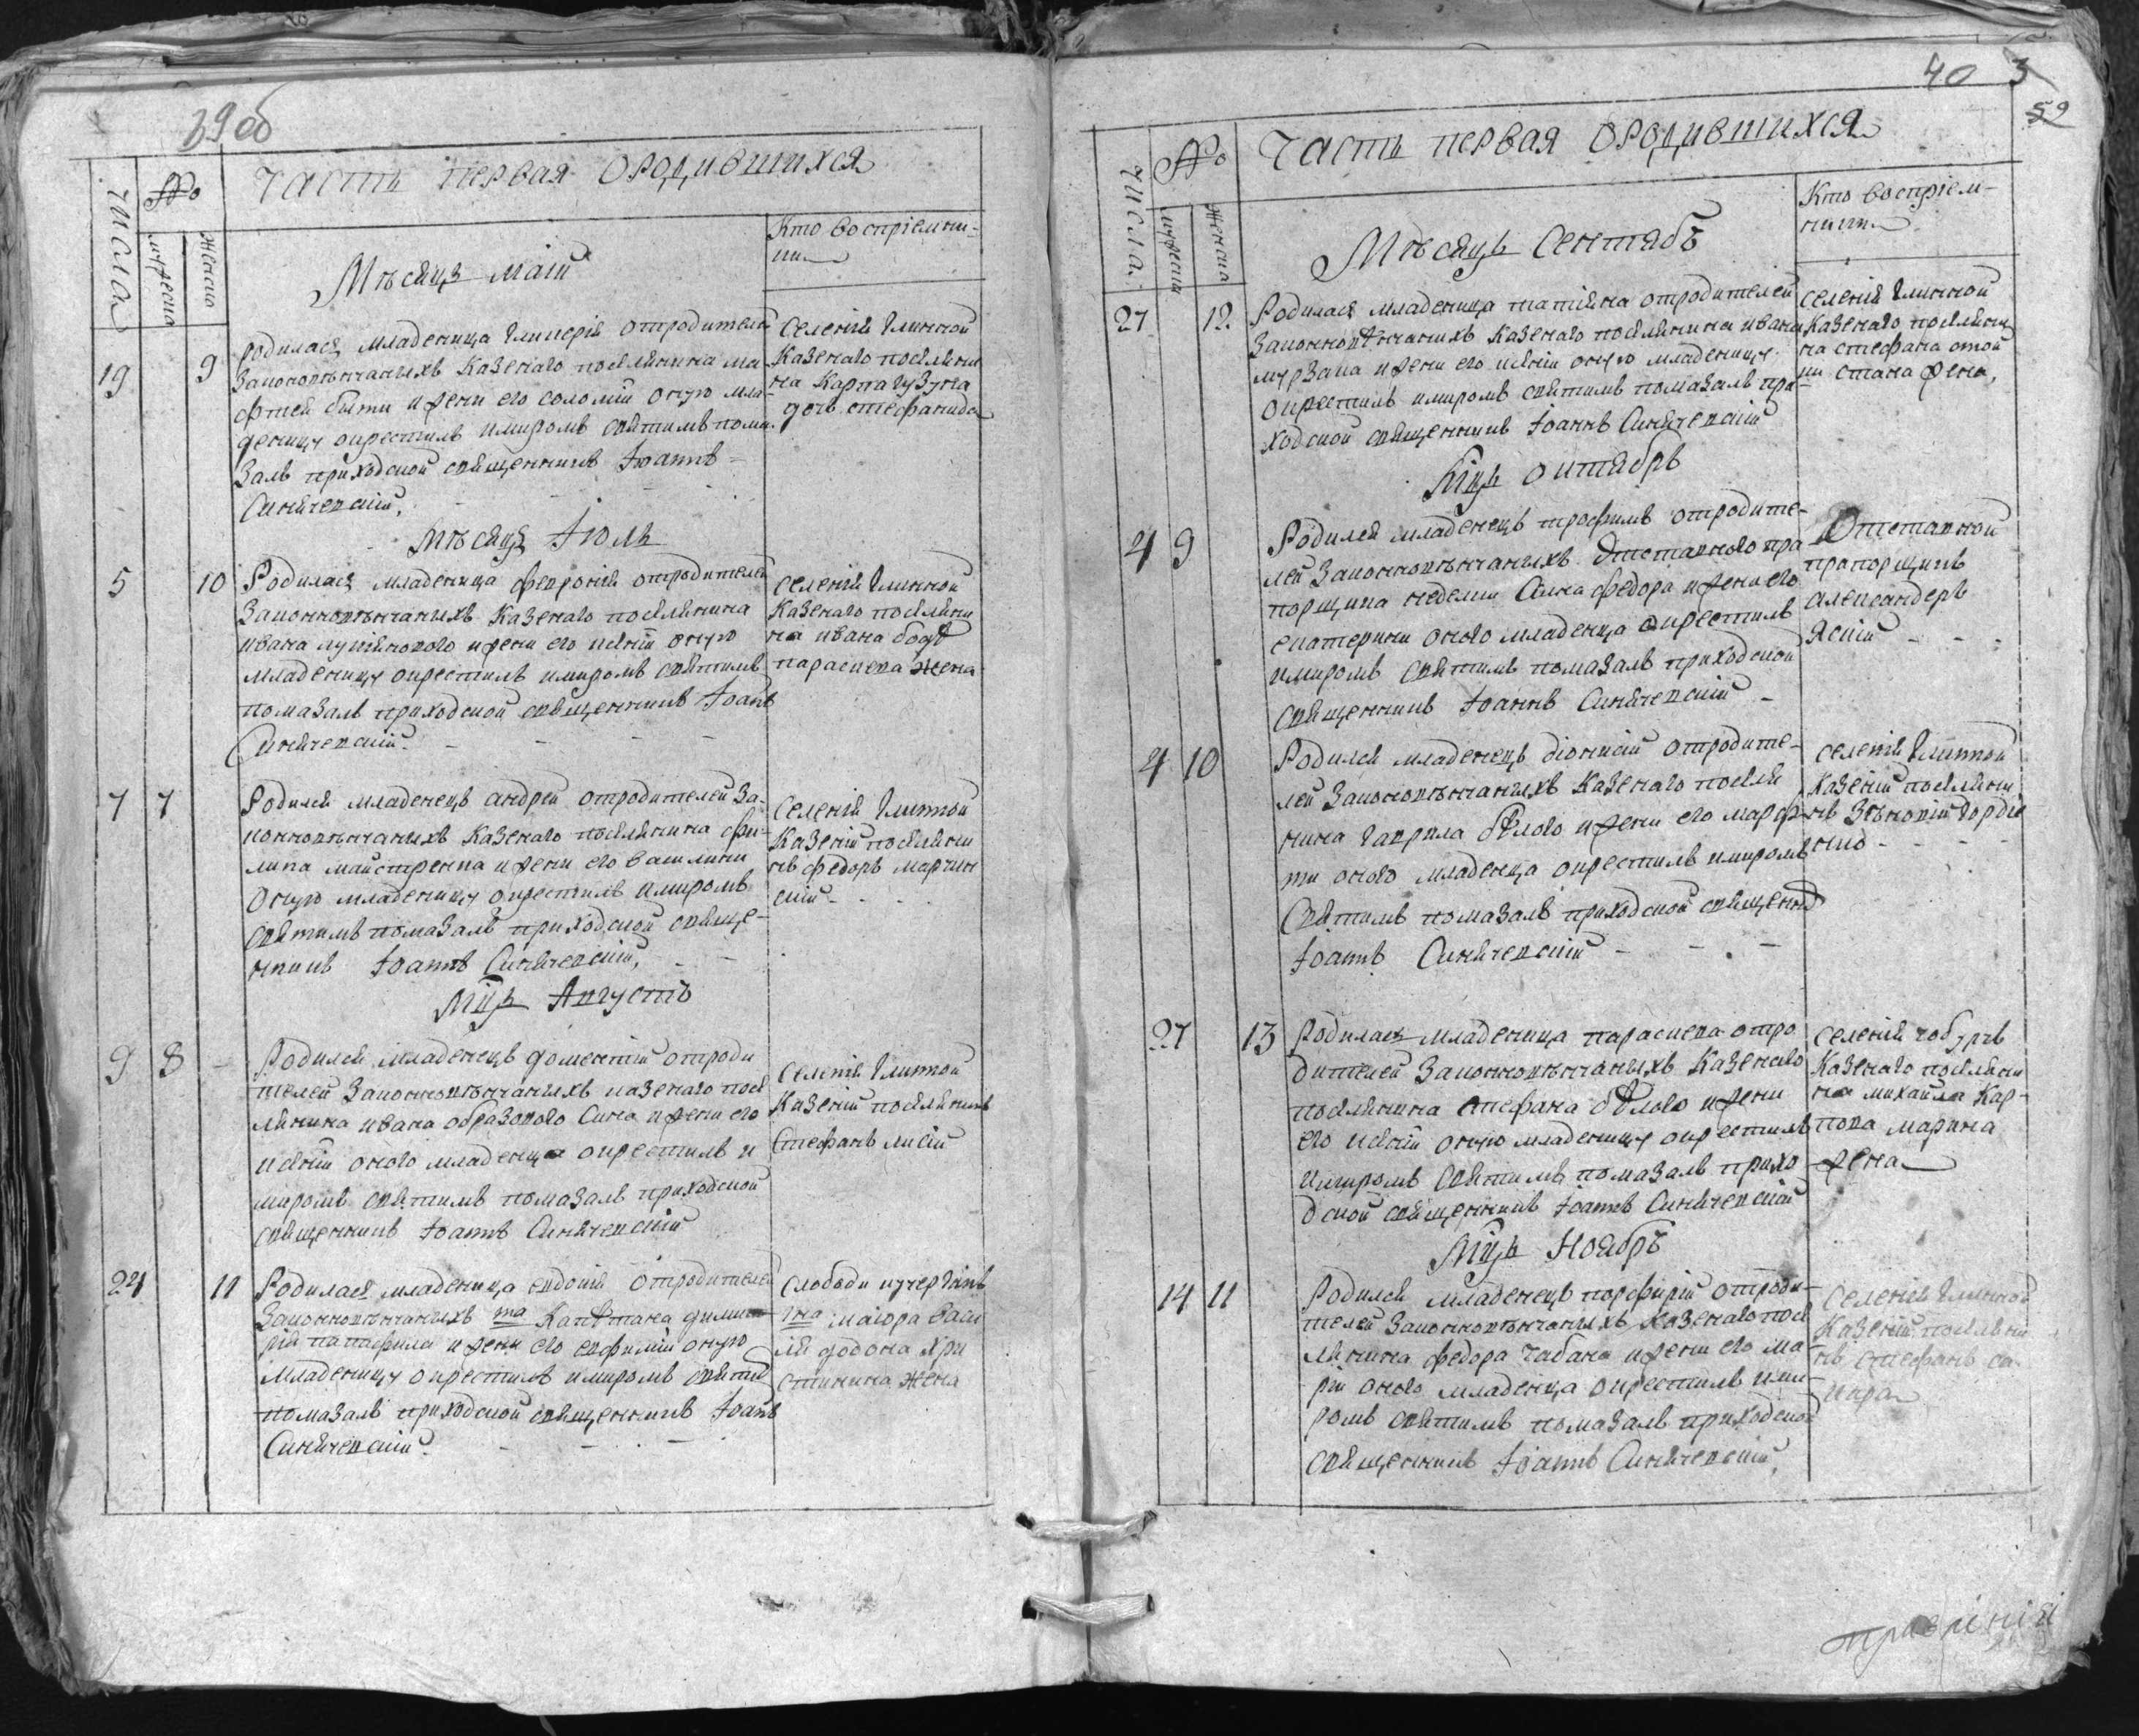 39 об
Часть первая ородившихся
Числа
№
мужеска
женска
Кто восприемни-
ки
Месяцъ май
19 9
родилась младеница Гликерія отродителей
Законновенчаныхъ Казенаго поселянина Ма-
фтей быти ижени его соломіи оную мла-
деницу окрестилъ имиромъ святимъ пома-
Залъ приходской священникъ Іоаннъ
Синячевскій.
Селенія Глинной
Казенаго поселяни
на Карпа Гузуна
дочь стефанида
Месяцъ Іюль
5 10
Родилась младеница февронія отродителей
Законновенчаныхъ Казенаго поселянина
ивана лукіянового ижени его иевгіи оную
младеницу окрестилъ имиромъ святимъ
помазалъ приходской священникъ Іоанъ
Синячевскій.
Селенія Глинной
Казенаго поселяни
на ивана
параскева жена
7 7
Родился младенецъ андрей отродителей За-
конновенчаныхъ Казенаго поселянина фи-
липа майстренка ижени его василики
Оную младеницу окрестилъ имиромъ
святимъ помазалъ приходской свяще-
нникъ Іоаннъ Синячевскій.
Селенія Глинной
Казеній поселяни
нъ федоръ марчин
скій
Мцъ Августъ
9 8
Родился младенецъ дометій отроди
телей Законновенчаныхъ казенаго посе
лянина ивана образового Сина ижени его
иевгіи оного младенца окрестилъ и
миромъ святимъ помазалъ приходской
священникъ Іоаннъ Синячевскій
Селенія Глинной
Казеній поселянинъ
Стефанъ лисій
24 11
Родилася младеница евдокія отродителей
Законновенчаныхъ та Капетана дими-
рія ижени его евфиміи оную
Младеницу окрестилъ имиромъ святим
помазалъ приходской священникъ Іоанъ
Синячевскій.
Слободи
на маіора Васи
лія додона Хри
стинина жена
40 3
59
Часть первая ородившихся
Числа
№
мужеска
женска
Кто восприем-
ники
Месяцъ Сентябъ
27 12
Родилася младеница татіяна отродителей
Законновенчаныхъ Казенаго поселянина ивана
мурзака ижени его иевгіи оную младеницу
окрестилъ имиромъ святимъ помазалъ при-
ходской священникъ Іоаннъ Синячевскій
Селенія Глинной
Казенаго поселяни
на стефана
стана жена,
Мцъ октябръ
4 9
Родился младенецъ трофимъ отродите-
лей Законновенчаныхъ Отставного пра
порщика Сина федора ижени его
екатерини оного младенца окрестилъ
имиромъ святимъ помазалъ приходской
священникъ Іоаннъ Синячевскій
Отставной
прапорщикъ
александеръ
Яскій
4 10
Родился младенецъ діонисій отродите-
лей Законновенчаныхъ Казенаго поселя
нина гаврила белого ижени его марф-
ти оного младенца окрестилъ имиромъ
Святимъ помазалъ приходской священн
Іоаннъ Синячевскій
Селенія Глинной
Казеній поселяни
нъ Зеновій Гордіе
нко
27 13
Родилась младеница параскева отро
дителей Законновенчаныхъ Казенаго
поселянина стефана белого ижени
его иевгіи оную младеницу окрестилъ
имиромъ святимъ помазалъ прихо
дской священникъ Іоаннъ Синячевскій
Селенія чобурчъ
Казенаго поселяни
на михайла Кар-
пова марина
жена
Мцъ Ноябръ
14 11
Родился младенецъ порфирій отроди-
телей Законновенчаныхъ Казенаго посе
лянина федора чабана ижени его ма
ріи оного младенца окрестилъ ими-
ромъ святимъ помазалъ приходской
священникъ Іоаннъ Синячевскій,
Селенія Глинной
Казеній поселяни
нъ стефанъ са-
кара